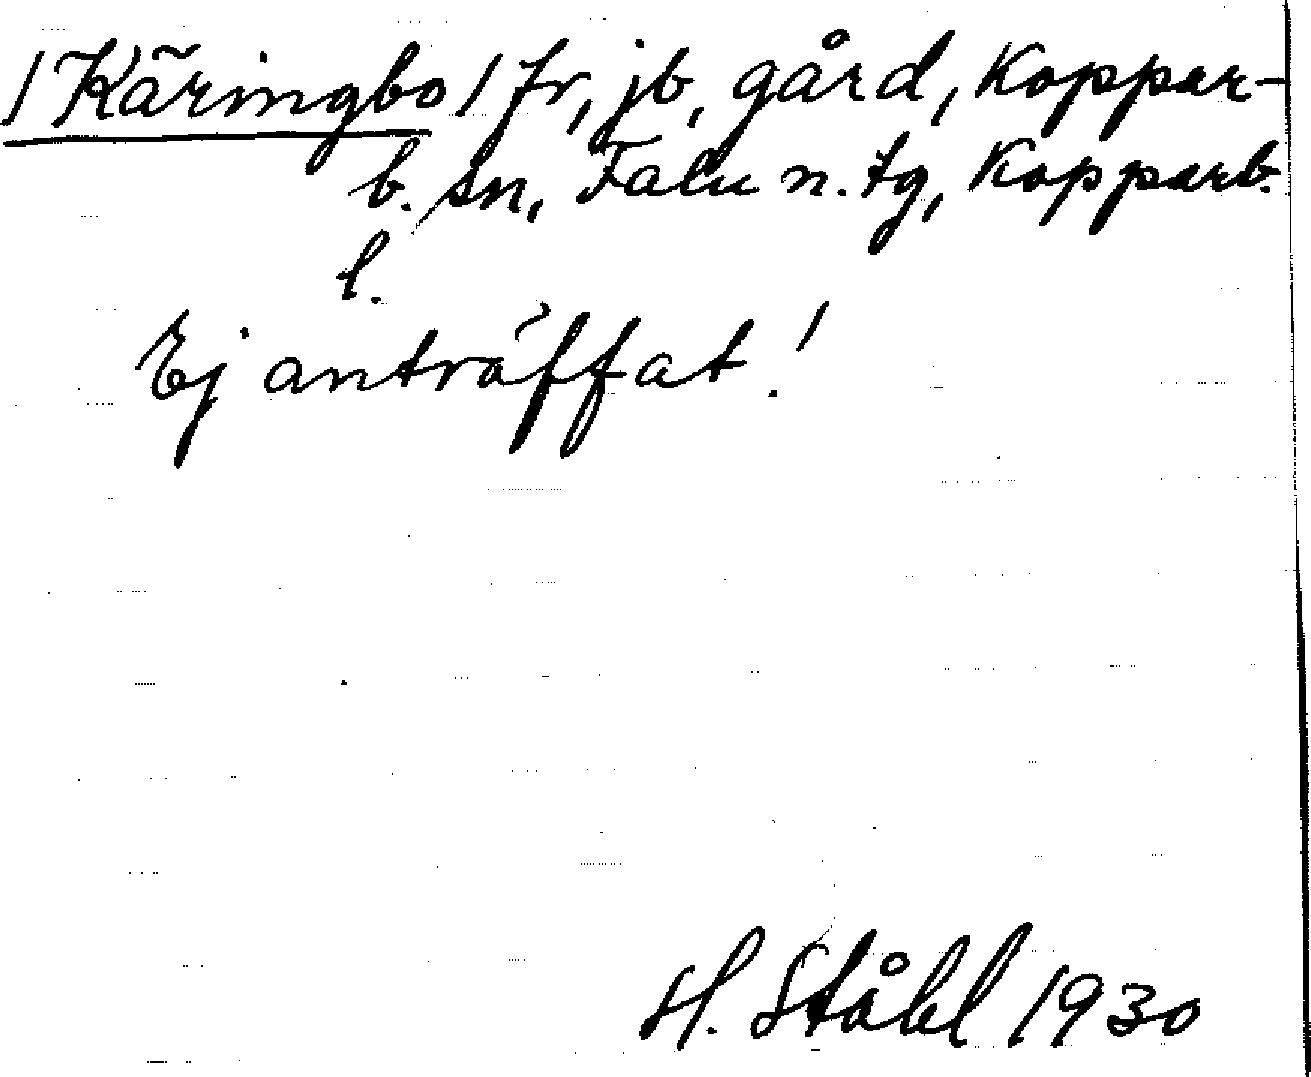 /Käringbo/ fr, jb, gård, Koppar-
b. sn, Falu n. tg, Kopparb.
l.
Ej anträffat!
H. Ståhl 1930